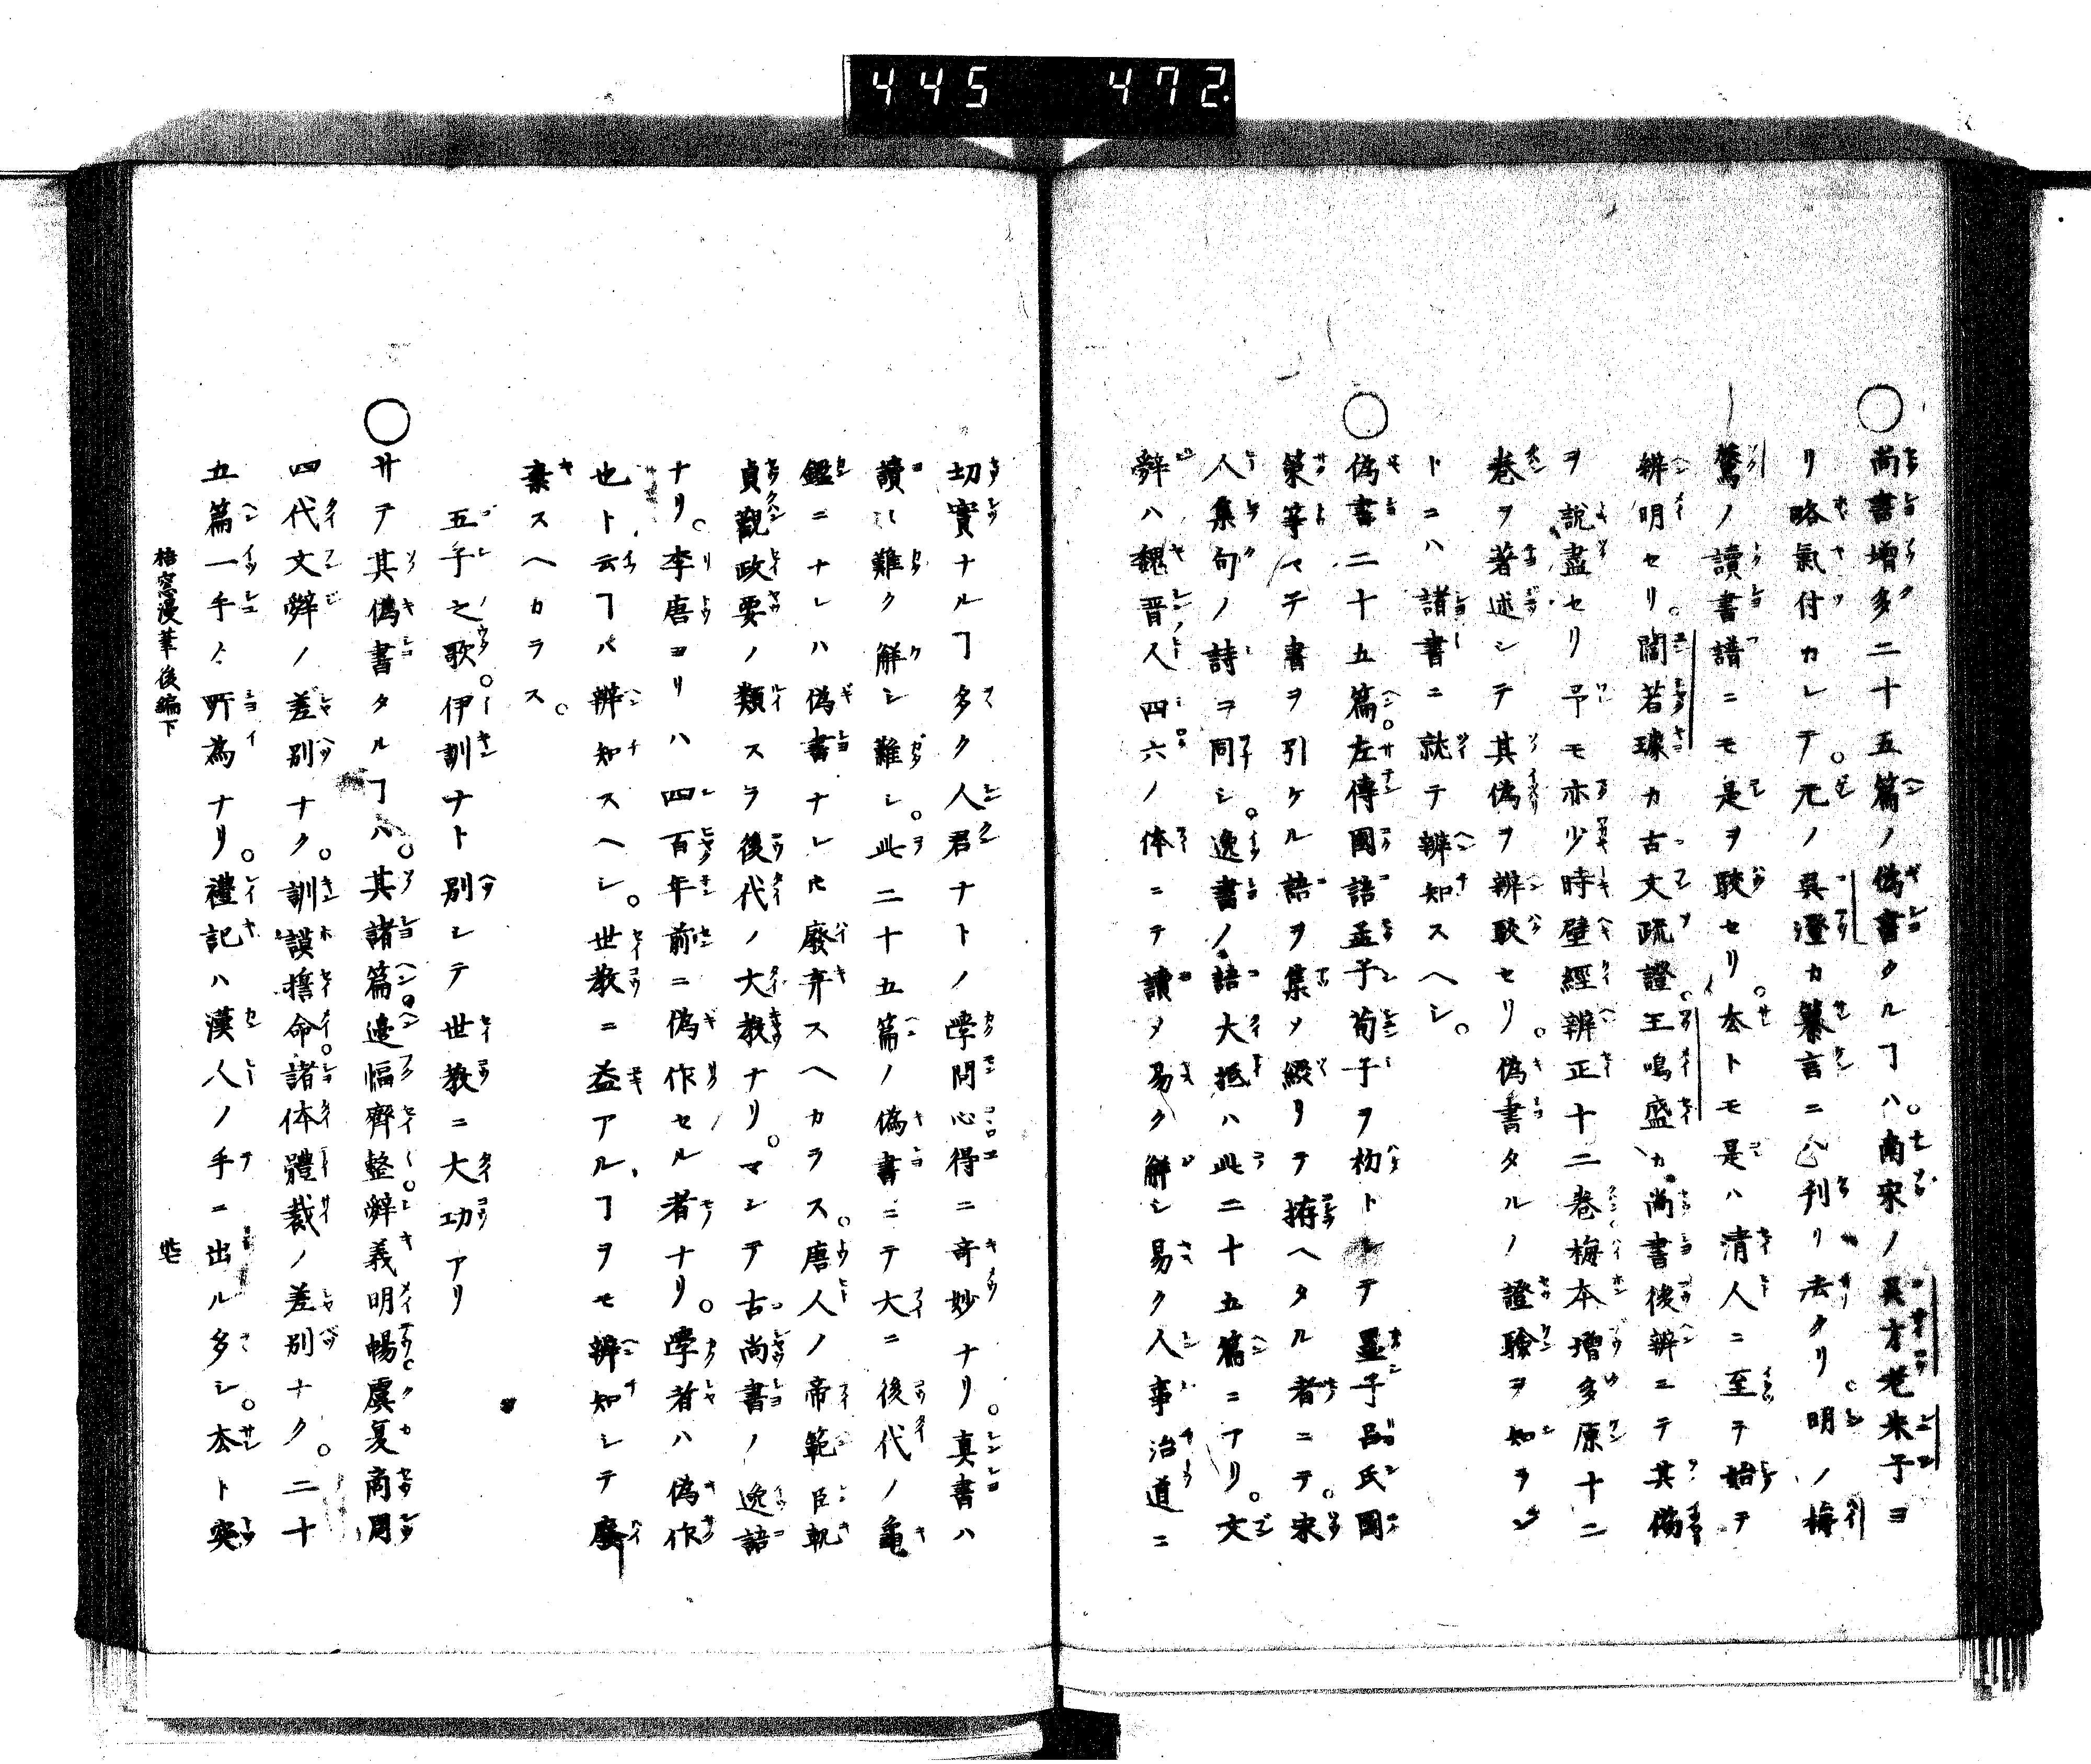 445 472.
○尚書増多二十五篇ノ偽書タルヿハ。南宋ノ呉才老朱子ヨ
リ略氣付カレテ。元ノ呉澄カ纂言ニハ刋リ去タリ。明ノ梅
鷟ノ讀書譜ニモ是ヲ駁セリ。夲トモ是ハ清人ニ至テ始テ
辨明セリ。閻若璩カ古文疏證。王鳴盛カ尚書後辨ニテ其偽
ヲ說盡セリ予モ亦少時壁經辨正十二巻梅本増多原十二
巻ヲ著述シテ其偽ヲ辨駁セリ。偽書タルノ證驗ヲ知ラン
トニハ諸書ニ就テ辨知スヘシ。
○偽書二十五篇。左傳國語孟子荀子ヲ初トシテ墨子呂氏國
策等マテ書ヲ引ケル語ヲ集メ綴リテ拵ヘタル者ニテ。宋
人集句ノ詩ヲ同シ。逸書ノ語大抵ハ此二十五篇ニアリ。文
辤ハ魏晋人四六ノ体ニテ讀メ易ク解シ易ク人事治道ニ
切實ナルヿ多ク人君ナトノ學問心得ニ奇妙ナリ。真書ハ
讀ミ難ク解シ難シ。此二十五篇ノ偽書ニテ大ニ後代ノ亀
鑑ニナレハ偽書ナレ𪜈廢弃スヘカラス。唐人ノ帝範臣軌
貞觀政要ノ類スラ後代ノ大教ナリ。マシテ古尚書ノ逸語
ナリ。李唐ヨリハ四百年前ニ偽作セル者ナリ。學者ハ偽作
也ト云ヿハ辨知スヘシ。世教ニ益アルヿヲモ辨知シテ廢
棄スヘカラス。
五子之歌。伊訓ナト別シテ世教ニ大功アリ
○サテ其偽書タルヿハ。其諸篇邉幅齊整。辤義明暢。虞夏商周
四代文辤ノ差別ナク。訓謨誓命。諸体體裁ノ差別ナク。二十
五篇一手ノ所為ナリ。禮記ハ漢人ノ手ニ出ル多シ。夲ト突
梧窓漫筆後編下